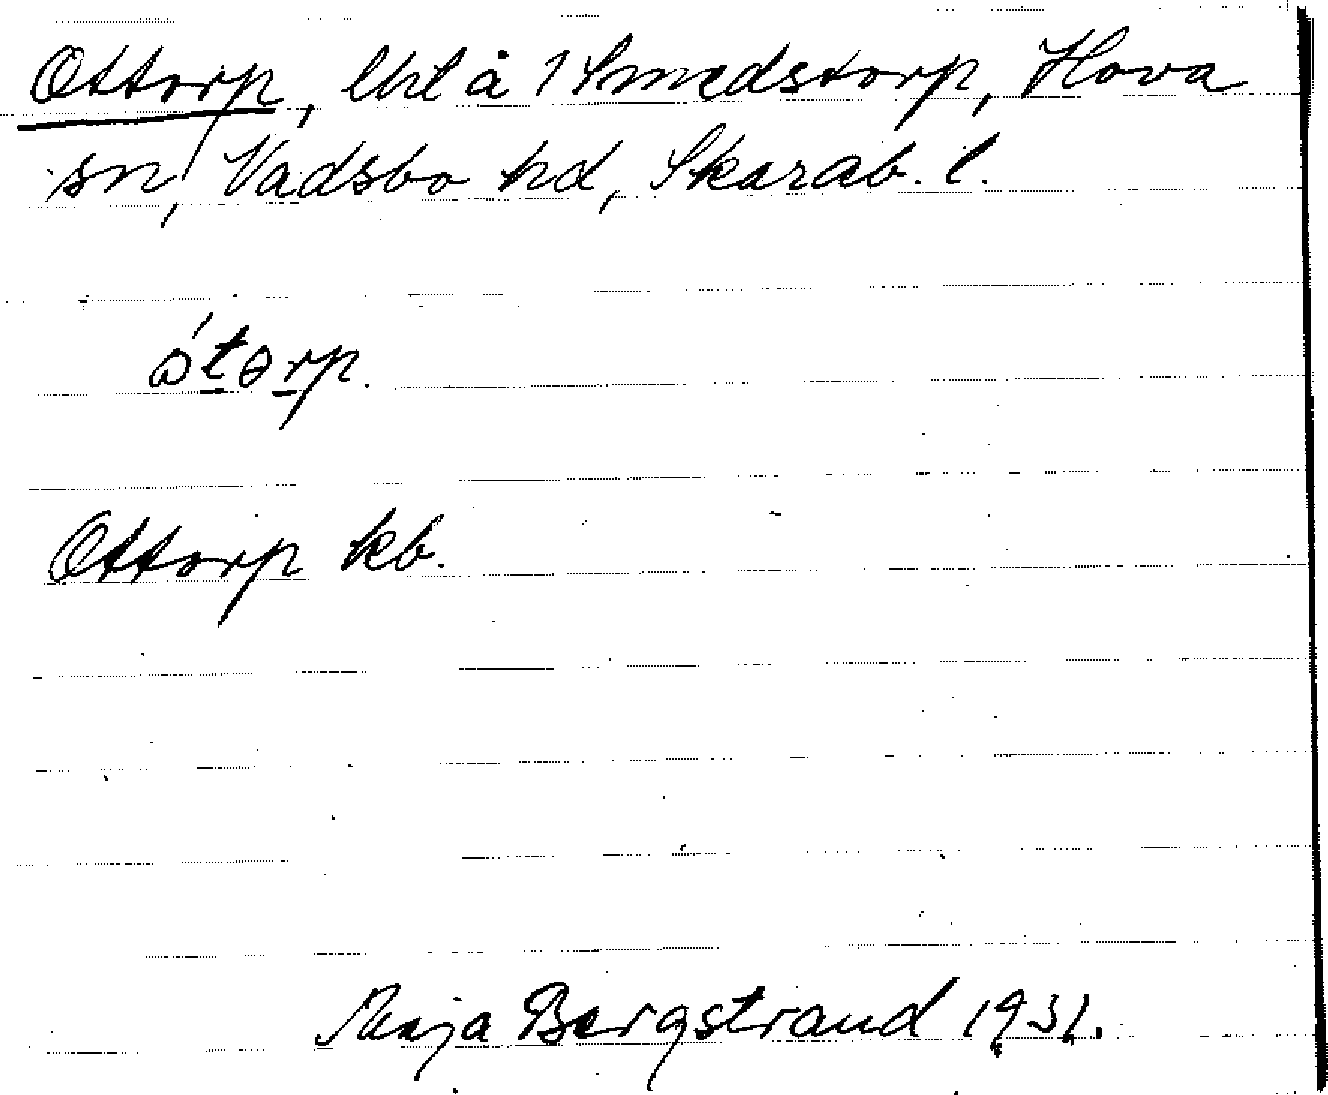 Ottorp, lht å 1 Smedstorp, Hova
sn, Vadsbo hd, Skarab. l.
ótərp.
Ottorp kb.
Maja Bergstrand 1931.